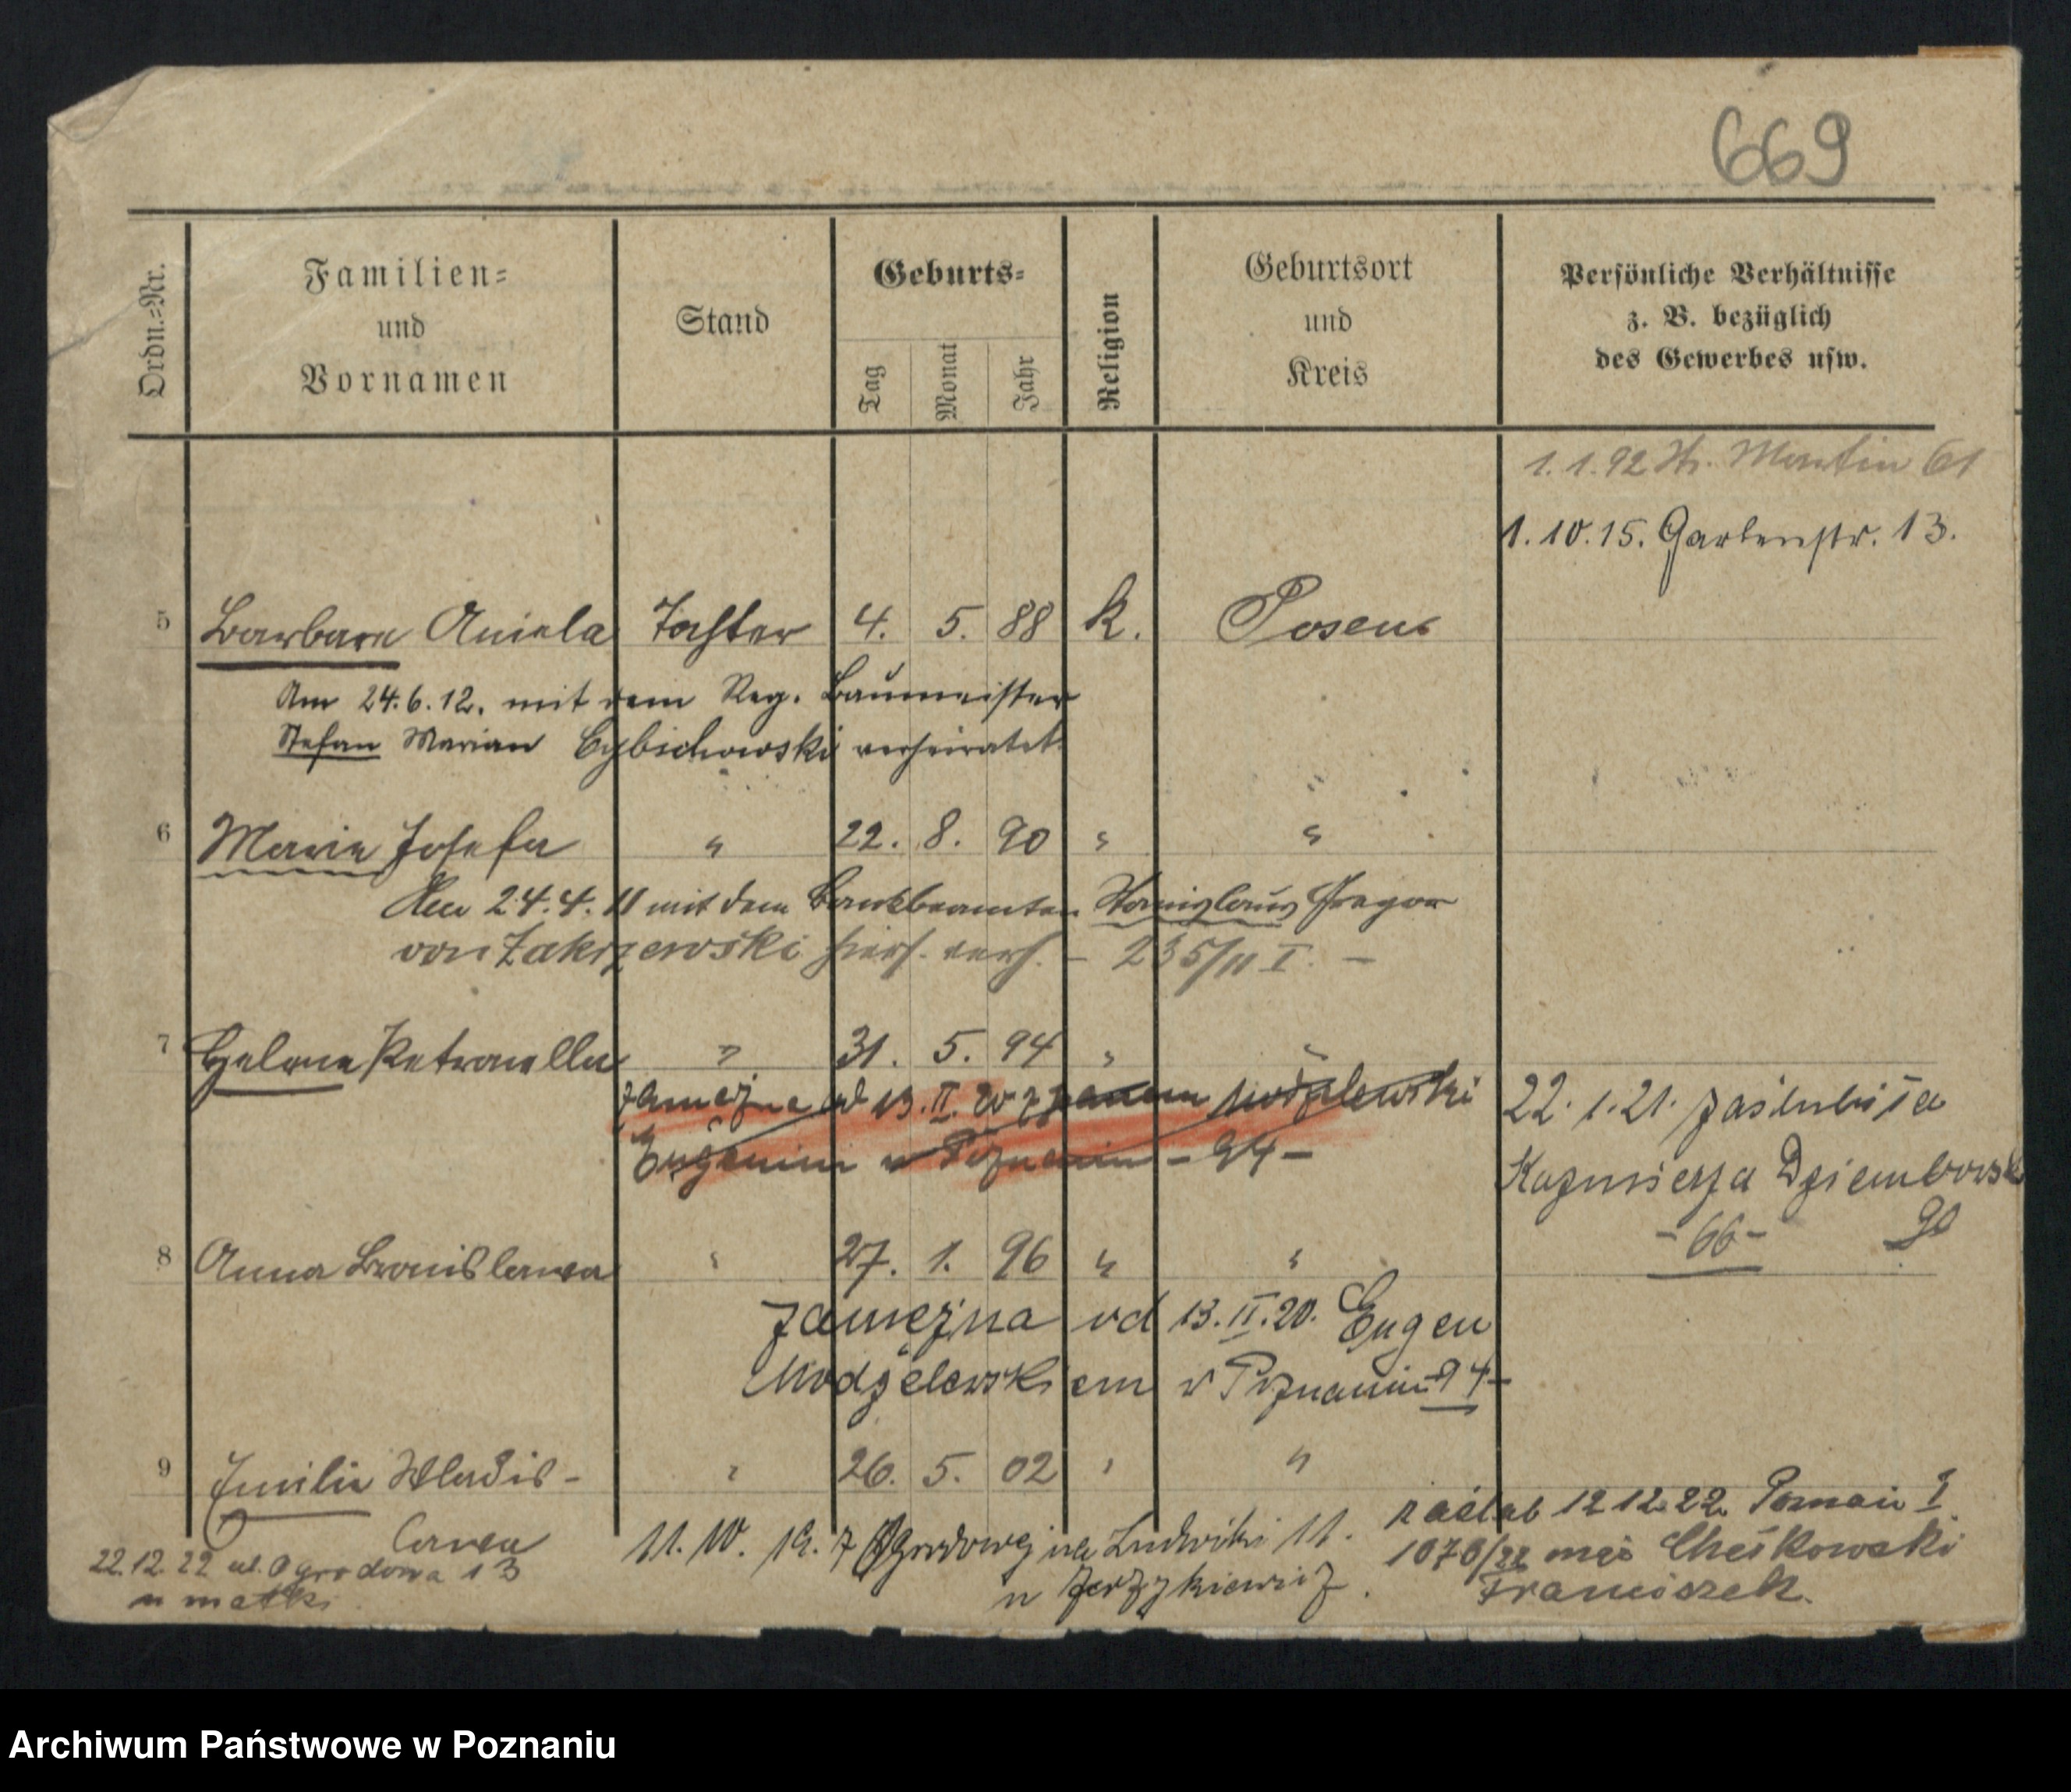 669
Ordn.-Nr.
Familien-
und
Vornamen
Stand
Geburts-
Tag
Monat
Jahr
Religion
Geburtsort
und
Kreis
Persönliche Verhältnisse
z. B. bezüglich
des Gewerbes usw.
1.1.92 St. Martin 61
1.10.15. Gartenstr. 13.
5 Barbara Aniela Tochter 4. 5. 88 k. Posen
Am 24.6.12. mit dem Reg. Baumeister
Stefan Marian Cybichowski verheiratet.
6 Marie Josefa " 22. 8. 90 " "
Am 24.4.11 mit dem Bankbeamten Stanislaus Gregor
von Zakrzewski hiers. verh. – 235/11 I. –
7 Helene Petronella " 31. 5. 94 " "
zamężna od 13.II.20 z panem Modzelewski
Eugenim w Poznaniu – 94 –
22.1.21. zaślubiła
Kazmierza Dziembowsk
– 66 – 90
8 Anna Bronislawa " 27. 1. 96 " "
zamężna od 13.II.20. Eugen
Modzelewskiem w Poznaniu 94 –
9 Emilie Wladis- " 26. 5. 02 " "
lawa
22.12.22 ul. Ogrodowa 13
u matki
11.10.19. z Ogrodowej na Ludwiki 11.
u Jerzykiewicz.
zaślub 12 12.22 Poznań I
1070/22 mąż Chełkowski
Franciszek.
Archiwum Państwowe w Poznaniu